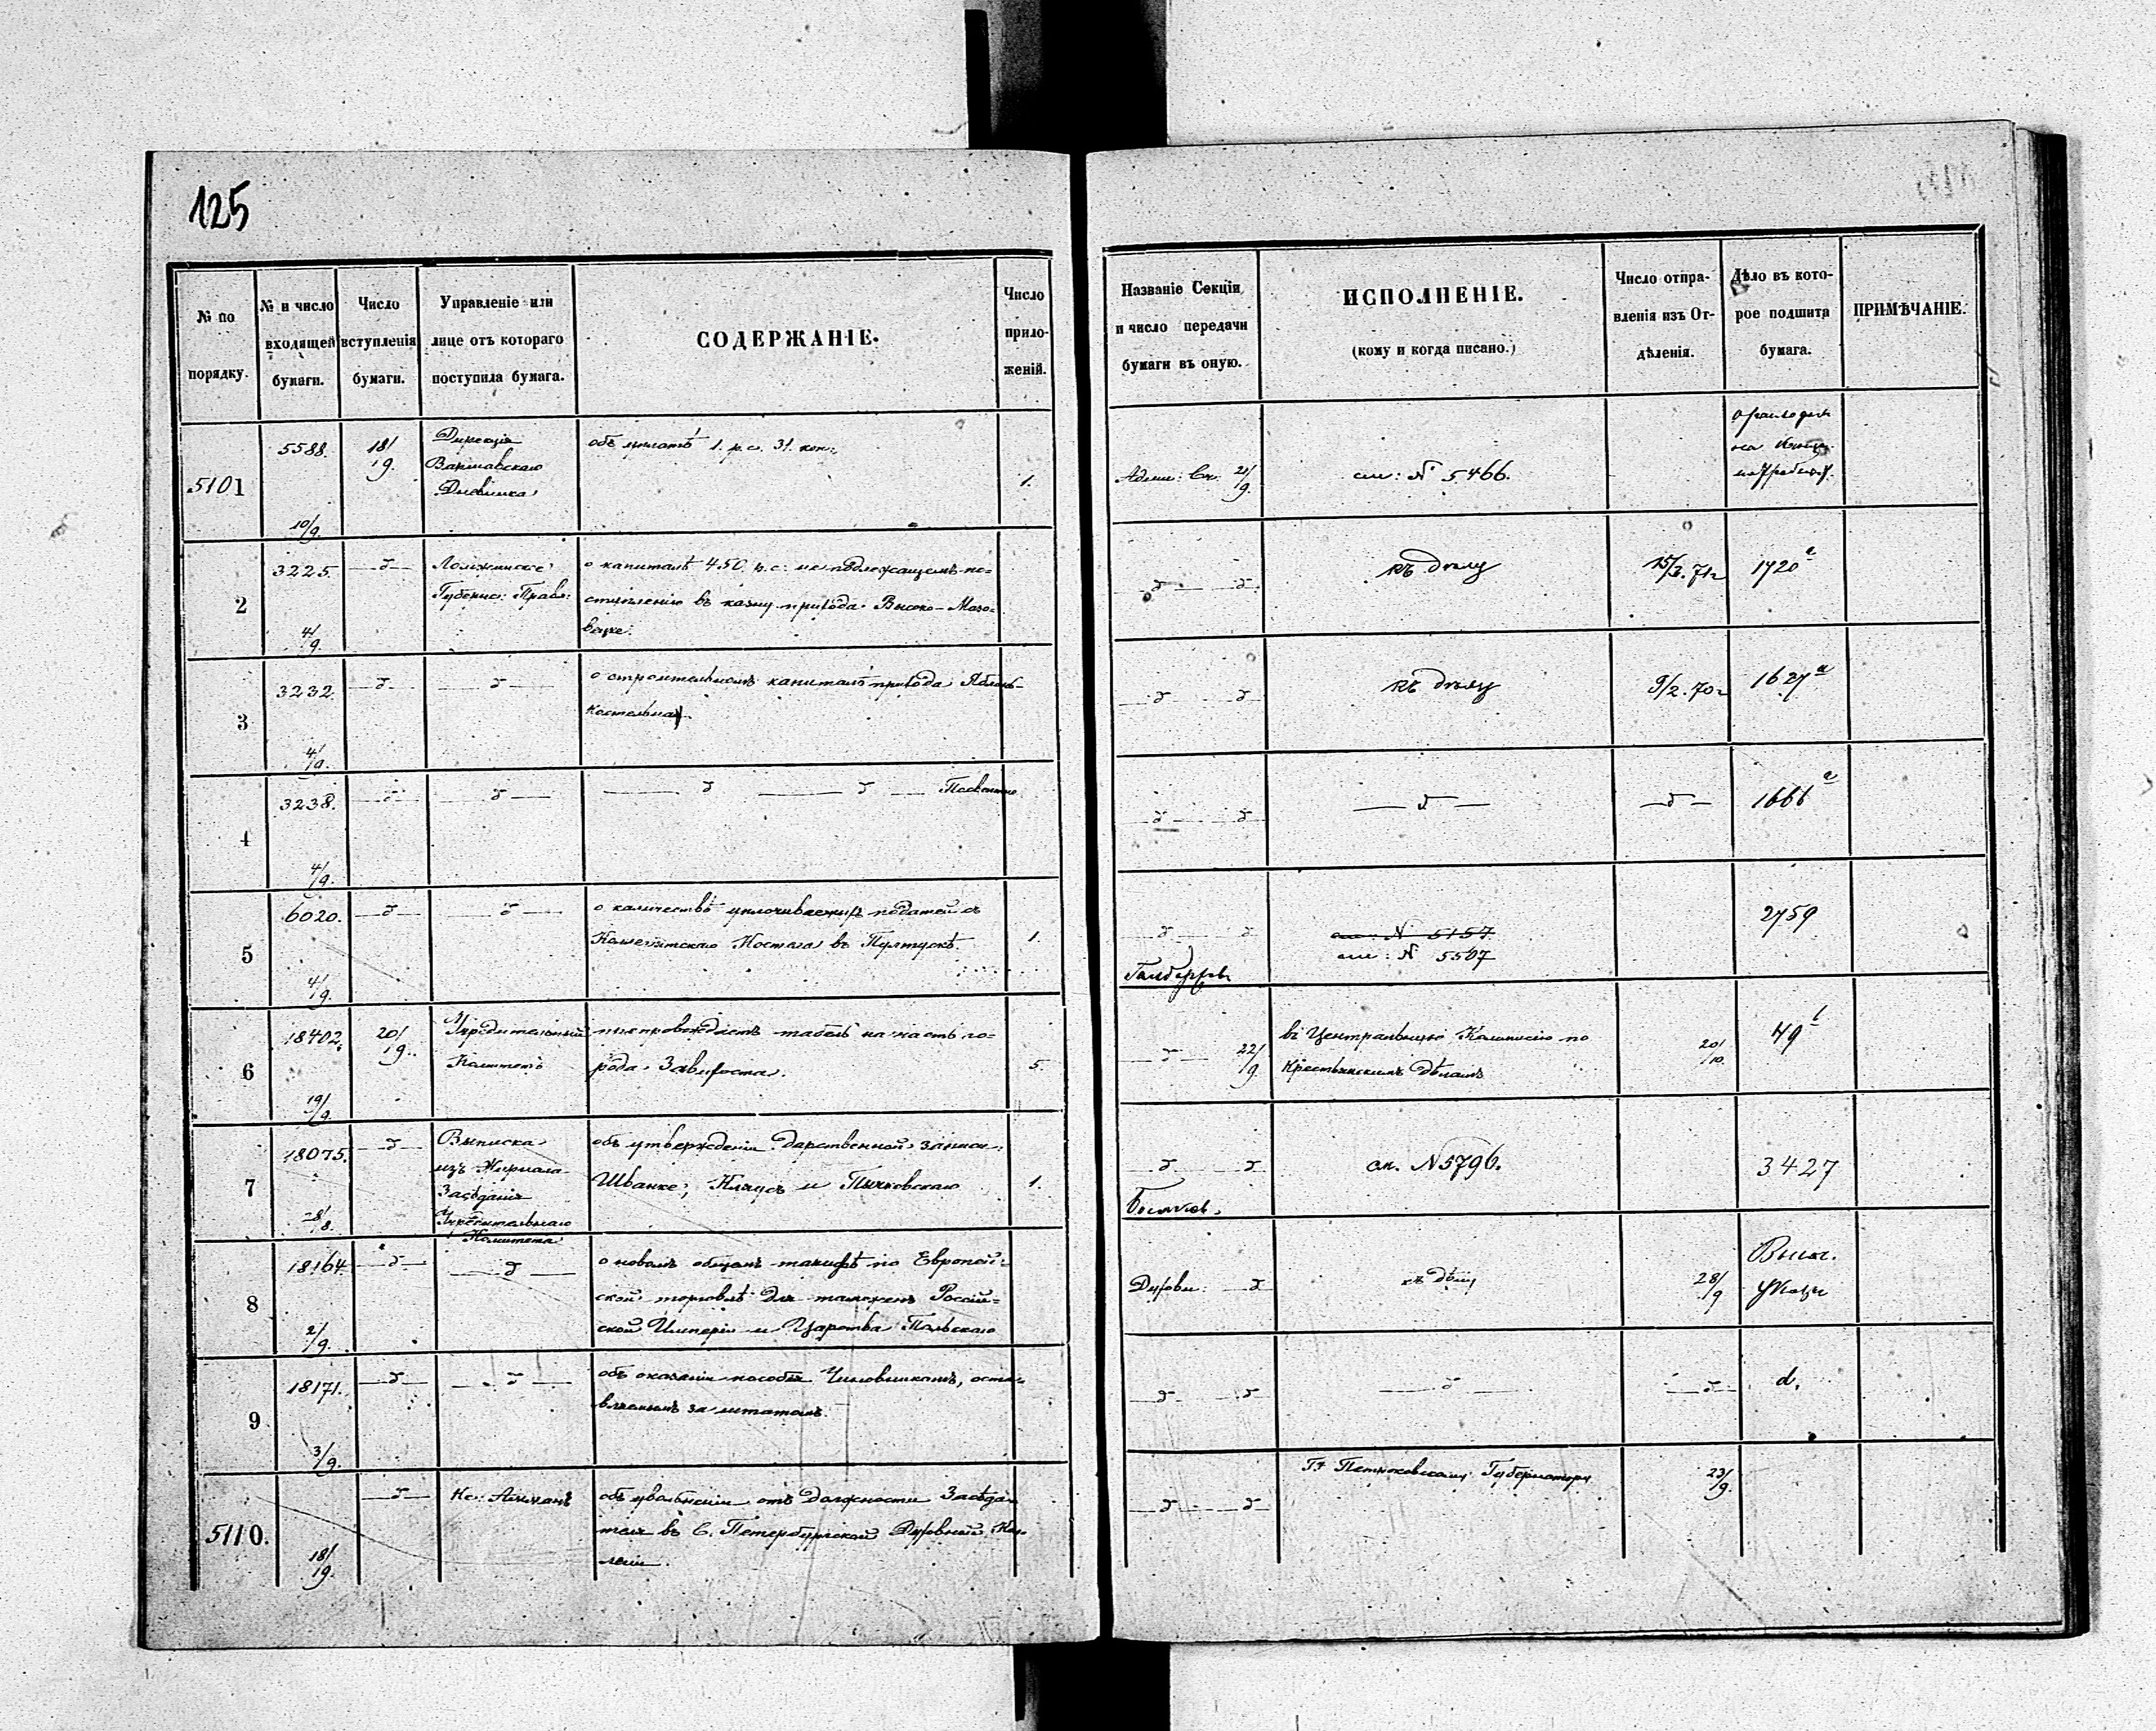 125
№ по порядку.
№ и число входящей бумаги.
Число вступленія бумаги.
Управленіе или лице отъ котораго поступила бумага.
СОДЕРЖАНІЕ.
Число прило-женій.
Названіе Секціи и число передачи бумаги въ оную.
ИСПОЛНЕНІЕ.
(кому и когда писано.)
Число отпра-вленія изъ От-дѣленія.
Дѣло въ кото-рое подшита бумага.
ПРИМѢЧАНІЕ.
5101
5588.
10/9.
18/9.
Дирекція
Варшавскаго
Дневника
объ уплатѣ 1. р. с. 31. коп:
1.
Адми: Ск: 21/9.
см: № 5466.
2
3225.
4/9.
—d—
Ломжинское
Губернс: Правл:
о капиталѣ 450. р. с: не подлежащемъ по=
ступленію въ казну прихода Высоко-Мазо=
вецке.
—d— —d—
къ дѣлу
15/3. 71г
1720 a
3
3232.
4/9.
—d—
—d—
о строительномъ капиталѣ прихода Яблонь-
Костельная.
—d— —d—
къ дѣлу
9/2. 70г
1627 a
4
3238.
4/9.
—d—
—d—
—d— —d—
—d— —d—
—d—
—d—
1666 a
5
6020.
4/9.
—d—
—d—
о количествѣ уплочиваемыхъ податей съ
Коллегіятскаго Костела въ Пултускѣ.
1.
—d— —d—
см: № 5157
см: № 5507
2759
6
18402.
19/9.
20/9.
Учредительный
Комитетъ
препровождаетъ табель на часть го=
рода Завихоста.
5.
—d— 22/9.
въ Центральную Коммисію по
Крестьянскимъ Дѣламъ
20/10.
49
7
18075.
28/8.
—d—
Выписка
изъ Журнала
Засѣданія
Учредительнаго
Комитета
объ утвержденіи дарственной записи
Шванке, Клаусъ и Пычковскаго
1.
—d— —d—
см. № 5796.
3427
8
18164.
2/9.
—d—
—d—
о новомъ общемъ тарифѣ по Европей=
ской торговлѣ для таможенъ Россій=
ской Имперіи и Царства Польскаго
Духовн: —d
къ дѣлу
28/9
9
18171.
3/9.
—d—
—d—
объ оказаніи пособія Чиновникамъ, оста=
вленнымъ за штатомъ.
—d— —d—
—d—
—d—
d.
5110.
18/9.
—d—
объ увольненіи отъ должности Засѣда=
теля въ С. Петербургской Духовной Кол=
легіи.
—d— —d—
Петроковскому Губернатору
23/9.